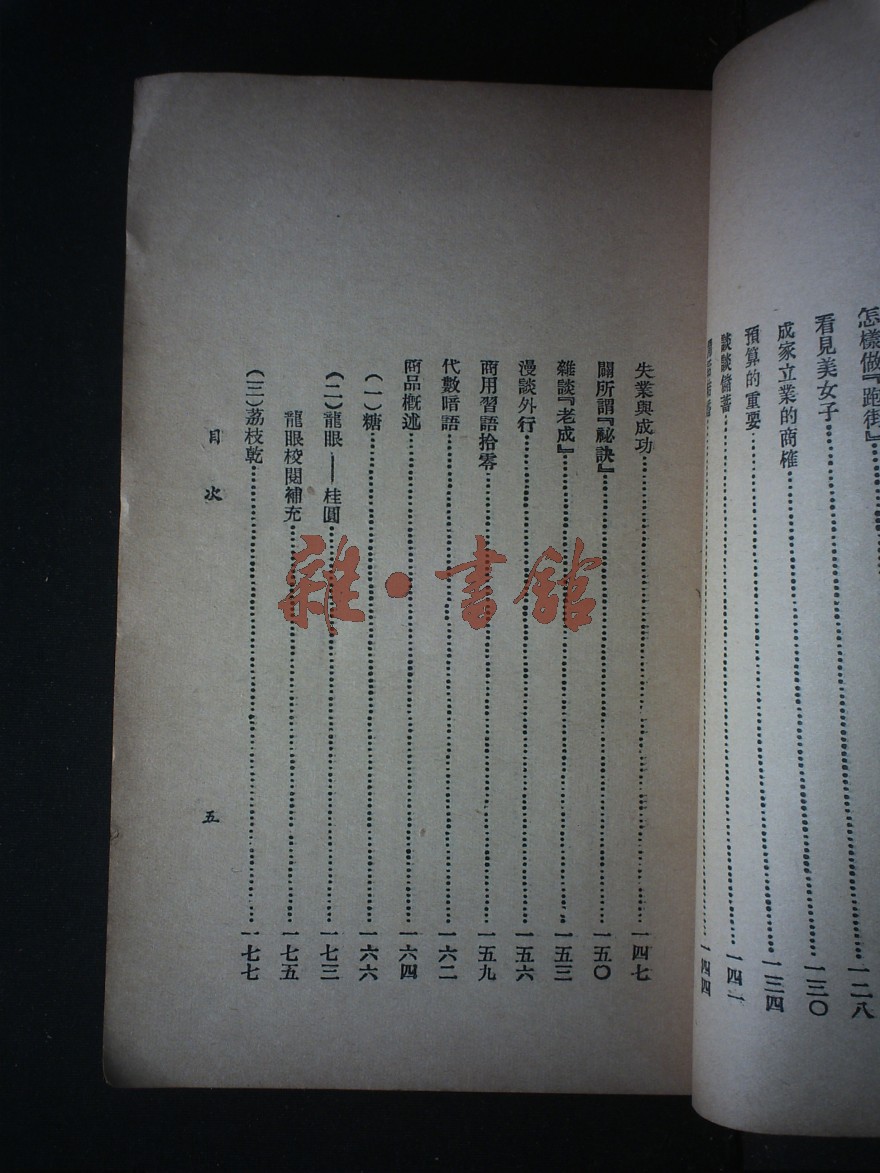 怎樣做『跑街』……一二八
看見美女子……一三〇
成家立業的商榷……一三四
預算的重要……一四一
談談儲蓄……一四二
……一四四
失業與成功……一四七
闢所謂『祕訣』……一五〇
雜談『老成』……一五三
漫談外行……一五六
商用習語拾零……一五九
代數暗語……一六二
商品概述……一六四
(一)糖……一六六
(二)龍眼——桂圓……一七三
龍眼校閱補充……一七五
(三)荔枝乾……一七七
目次
五
雜·書館